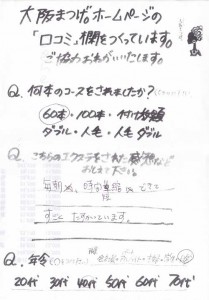 大阪まつげ。ホームページの
「口コミ」欄をつくっています。
ご協力おねがいいたします。
Q. 何本のコースをされましたか?
60本・100本・付け放題
ダブル・人毛・人毛ダブル
Q. こちらのエクステをされた感想など
おしえて下さい。
毎朝の、時間短縮に
すごく たすかっています。
Q. 年令
20代 30代 40代 50代 60代 70代